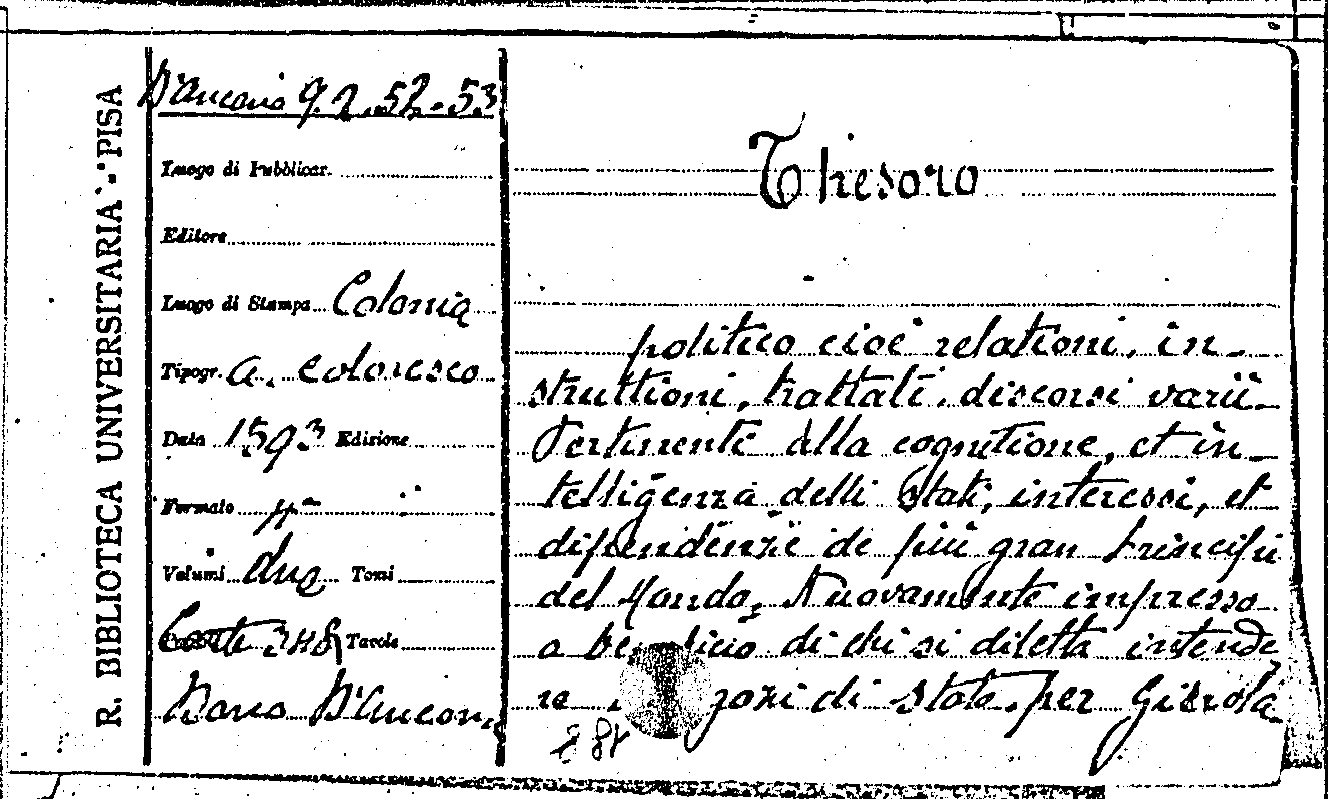 R. BIBLIOTECA UNIVERSITARIA - PISA
D'Ancona 9. 2. 52-53
Luogo di Pubblicar.
Editore
Luogo di Stampa Colonia
Tipogr. A. Coloresco
Data 1593 Edizione
Formato 4°
Volumi due Tomi
Carte 348 Tavole
Dono D'Ancona
Thesoro
politico cioè relationi, in-
struttioni, trattati, discorsi varii
Pertinenti alla cognitione, et in-
telligenza delli Stati, interessi, et
dipendenze de più gran Principi
del Mondo. Nuovamente impresso
a di chi si diletta intende
re di stato. per Girola